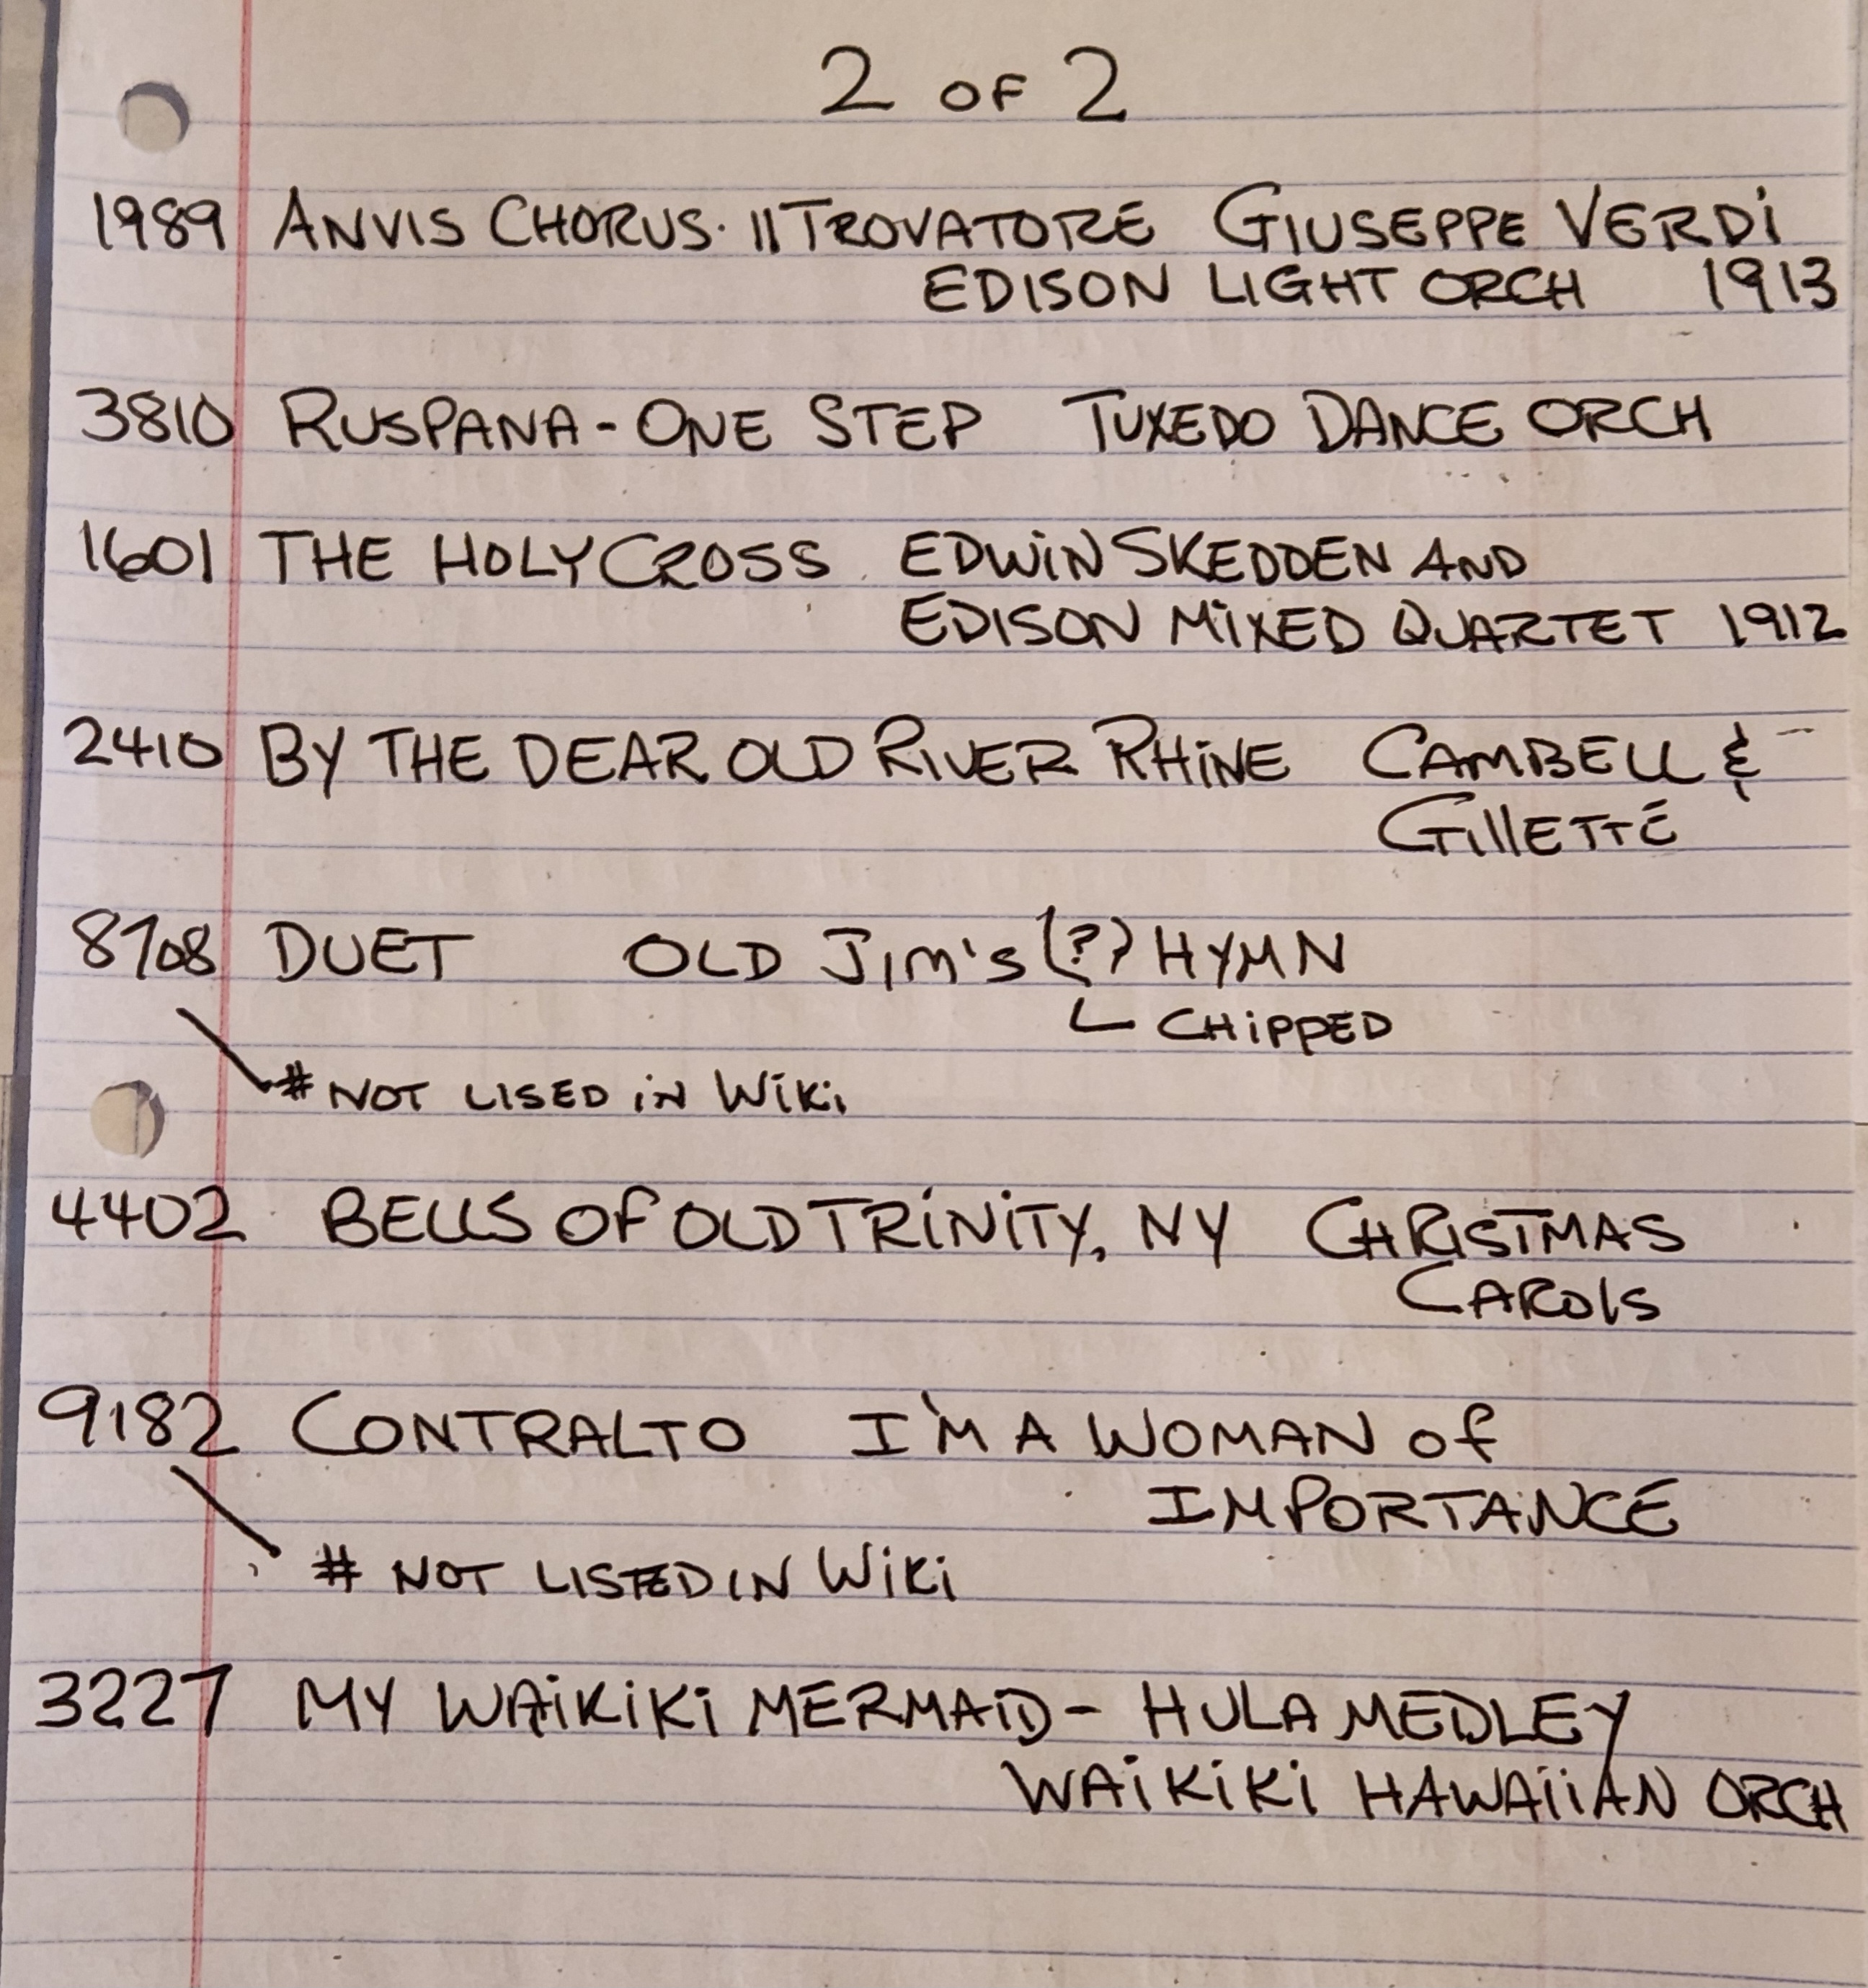 2 OF 2
1989 ANVIS CHORUS. IlTROVATORE GIUSEPPE VERDi
EDISON LIGHT ORCH 1913
3810 RUSPANA - ONE STEP TUXEDO DANCE ORCH
1601 THE HOLY CROSS EDWIN SKEDDEN AND
EDISON MIXED QUARTET 1912
2410 BY THE DEAR OLD RIVER RHINE CAMBELL &
GillETTE
8708 DUET OLD JIM'S (?) HYMN
CHIPPED
# NOT LISED IN WIKI
4402 BELLS OF OLD TRINITY, NY CHRISTMAS
CAROLS
9182 CONTRALTO I'M A WOMAN OF
IMPORTANCE
# NOT LISTED IN WIKI
3227 MY WAIKIKI MERMAID - HULA MEDLEY
WAIKIKI HAWAIIAN ORCH